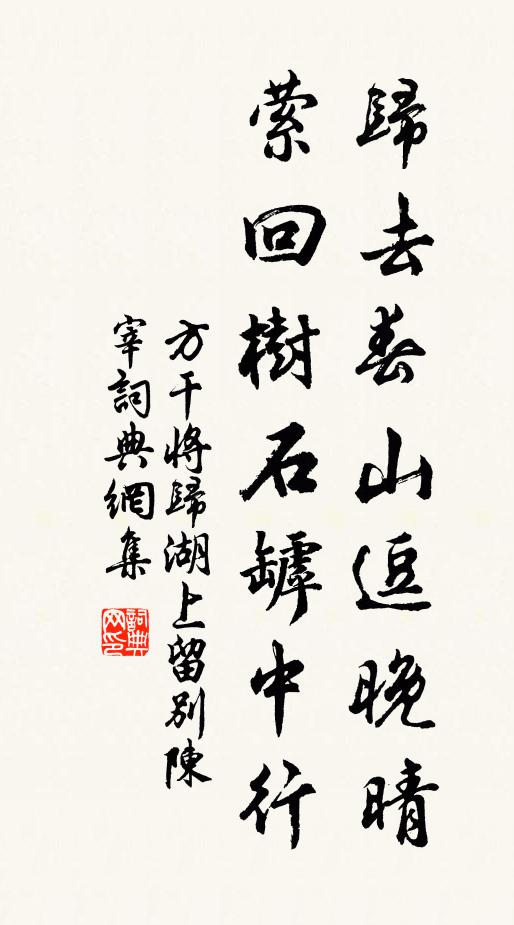 歸去春山逗晚晴
縈回樹石罅中行
方干將歸湖上留別陳
宰詞典網集
詞典
网印